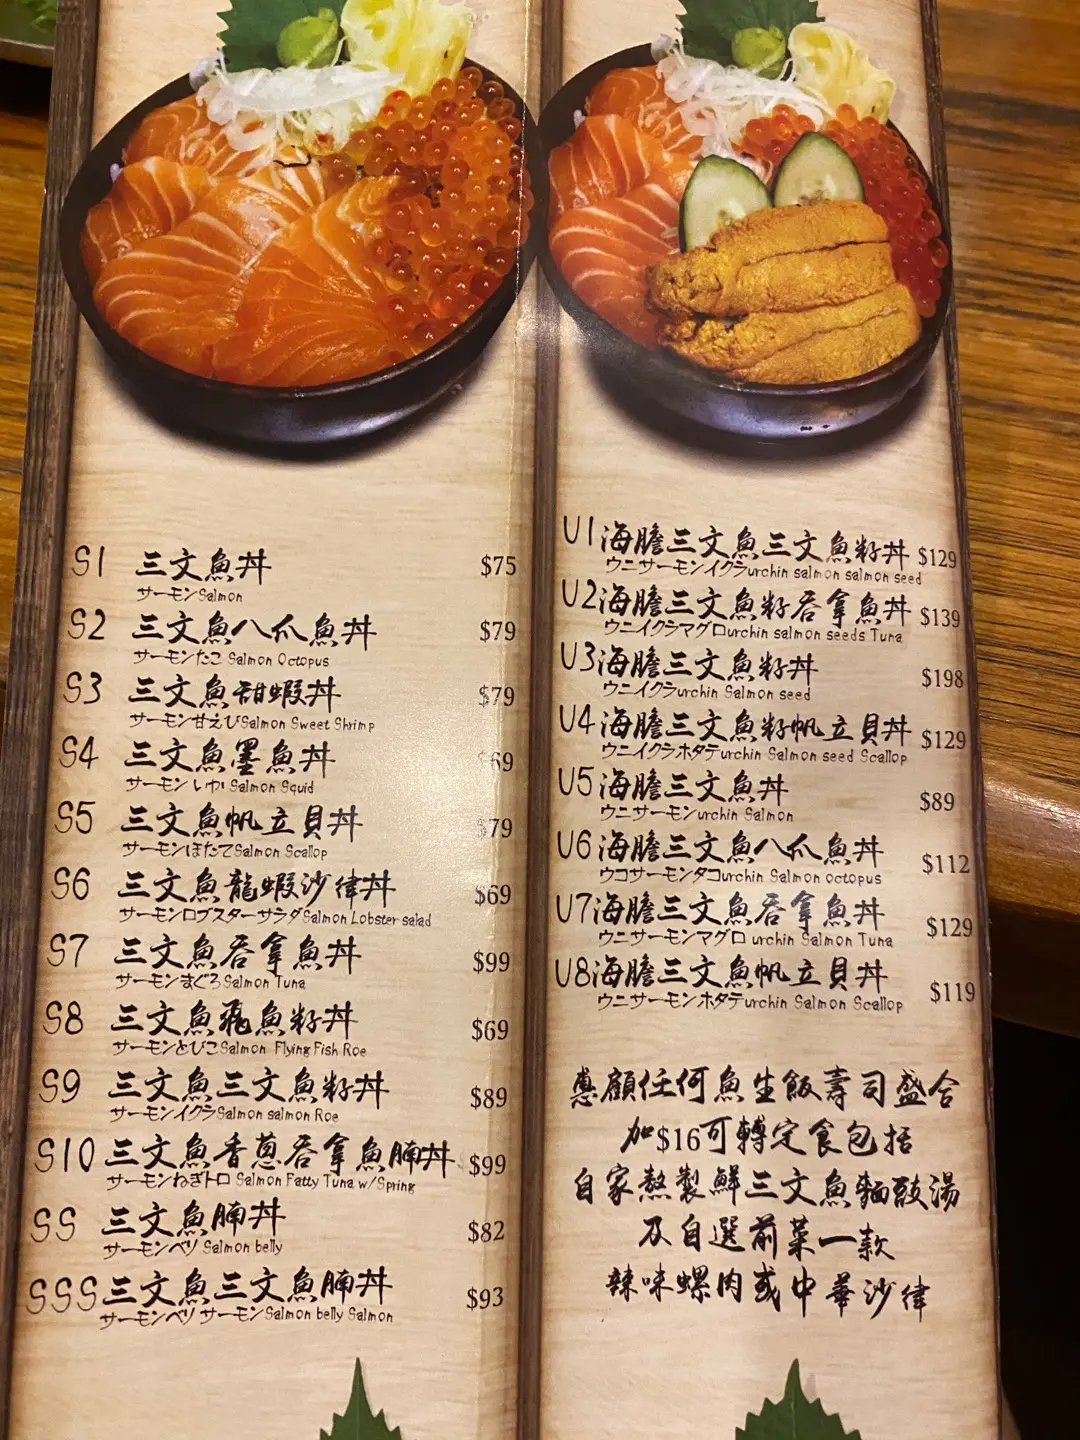 S1 三文魚丼 $75
サーモンSalmon
S2 三文魚八爪魚丼 $79
サーモンたこ Salmon Octopus
S3 三文魚甜蝦丼 $79
サーモン甘えびSalmon Sweet Shrimp
S4 三文魚墨魚丼 $69
サーモン いか Salmon Squid
S5 三文魚帆立貝丼 $79
サーモンほたてSalmon Scallop
S6 三文魚龍蝦沙律丼 $69
サーモンロブスターサラダSalmon Lobster salad
S7 三文魚吞拿魚丼 $99
サーモンまぐろSalmon Tuna
S8 三文魚飛魚籽丼 $69
サーモンとびこSalmon Flying Fish Roe
S9 三文魚三文魚籽丼 $89
サーモンイクラSalmon salmon Roe
S10 三文魚香蔥吞拿魚腩丼 $99
サーモンねぎトロ Salmon Fatty Tuna w/Spring
SS 三文魚腩丼 $82
サーモンベリ Salmon belly
SSS 三文魚三文魚腩丼 $93
サーモンベリ サーモンSalmon belly Salmon
U1 海膽三文魚三文魚籽丼 $129
ウニサーモンイクラurchin salmon salmon seed
U2 海膽三文魚籽吞拿魚丼 $139
ウニイクラマグロurchin salmon seeds Tuna
U3 海膽三文魚籽丼 $198
ウニイクラurchin Salmon seed
U4 海膽三文魚籽帆立貝丼 $129
ウニイクラホタテurchin Salmon seed Scallop
U5 海膽三文魚丼 $89
ウニサーモンurchin Salmon
U6 海膽三文魚八爪魚丼 $112
ウコサーモンタコurchin Salmon octopus
U7 海膽三文魚吞拿魚丼 $129
ウニサーモンマグロ urchin Salmon Tuna
U8 海膽三文魚帆立貝丼 $119
ウニサーモンホタテurchin Salmon Scallop
惠顧任何魚生飯壽司盛合
加$16可轉定食包括
自家熬製鮮三文魚麵豉湯
及自選前菜一款
辣味螺肉或中華沙律